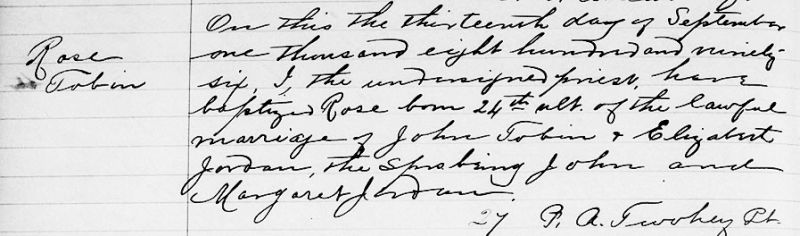 Rose
Tobin
On this the thirteenth day of September
one thousand eight hundred and ninety-
six, I, the undersigned priest, have
baptized Rose born 24th ult. of the lawful
marriage of John Tobin & Elizabeth
Jordan, the Sps being John and
Margaret Jordan.
27 P. A. Twohey Pt.